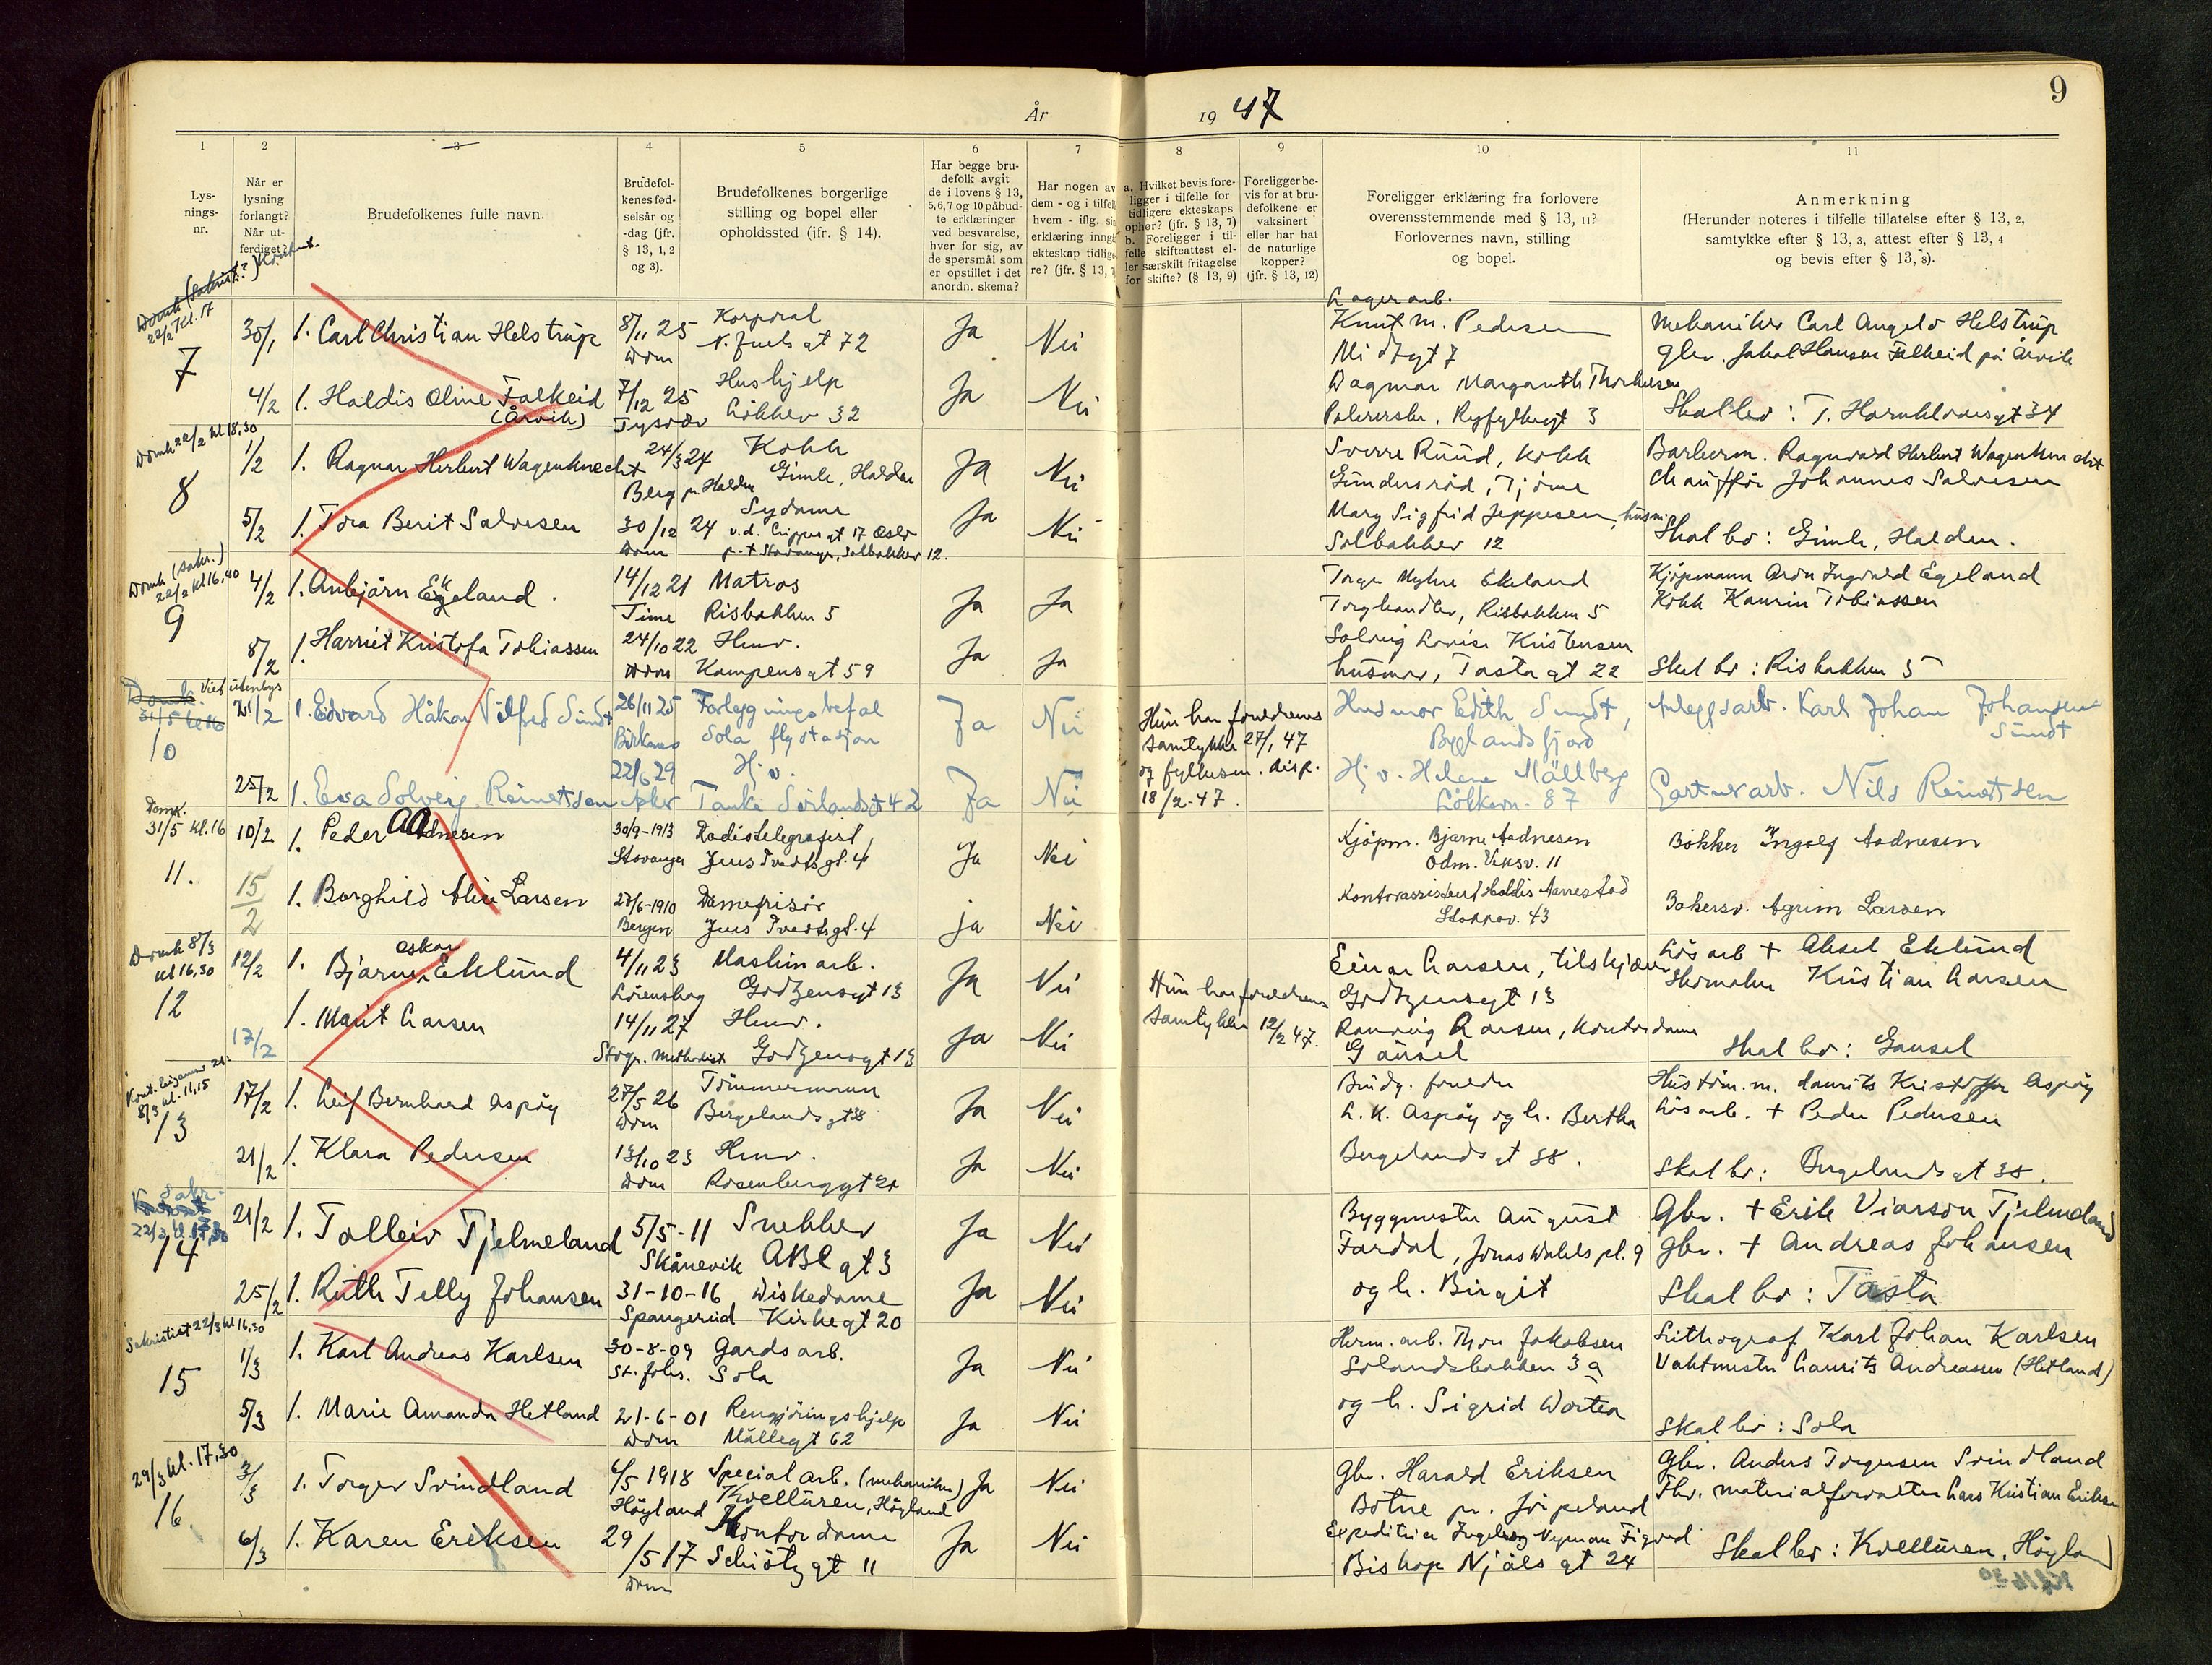 År 1947
9
1 2 3 4 5 6 7 8 9 10 11
Lys-
nings-
nr.
Når er
lysning
forlangt?
Når ut-
ferdiget?
Brudefolkenes fulle navn.
Brudefol-
kenes fød-
selsår og
-dag (jfr.
§ 13, 1, 2
og 3).
Brudefolkenes borgerlige
stilling og bopel eller
opholdssted (jfr. § 14).
Har begge bru-
defolk avgit
de i lovens § 13,
5,6,7 og 10 påbud-
te erklæringer
ved besvarelse,
hver for sig, av
de spørsmål som
er opstillet i det
anordn. skema?
Har nogen av
dem - og i tilfelle
hvem - iflg. sin
erklæring inngå
ekteskap tidlige
re? (jfr. § 13, 7
a. Hvilket bevis fore-
ligger i tilfelle for
tidligere ekteskaps
ophør? (jfr. § 13, 7)
b. Foreligger i til-
felle skifteattest el-
ler særskilt fritagelse
for skifte? (§ 13, 9)
Foreligger be-
vis for at bru-
defolkene er
vaksinert
eller har hat
de naturlige
kopper?
(jfr. § 13, 12)
Foreligger erklæring fra forlovere
overensstemmende med § 13, 11?
Forlovernes navn, stilling
og bopel.
Anmerkning
(Herunder noteres i tilfelle tillatelse efter § 13, 2,
samtykke efter § 13, 3, attest efter § 13, 4
og bevis efter § 13, 8).
22/2 kl. 17
7
30/1 1. Carl Christian Helstrup 8/11 25 Korporal Ja Nei
Dom gt 72
Lagerarb.
Knut M. Pedersen
Midtgt 7
Mekaniker Carl Angelo Helstrup
4/2 1. Haldis Oline Falkeid 7/12 25 Hushjelp Ja Nei
(Årvik) Tysvær Løkkev 32
Dagmar Margareth Thorkilsen
Ryfylkegt 3
Skal bo: T. Hornklovesgt 34
Domk 22/2 kl 18,30
8
1/2 1. Ragnar Herbert Wagenknecht 24/3 24 Kokk Ja Nei
Berg pr. Halden Gimle, Halden
Sverre Ruud, kokk
Gundersrød, Tjøme
Barberm. Ragnvard Herbert Wagenknecht
Chauffør Johannes Salvesen
5/2 1. Tora Berit Salvesen 30/12 24 Sydame Ja Nei
Dom v.d. Lippes gt 17 Oslo
p.t Stavanger, Solbakkev 12.
Mary Sigfrid Jeppesen, husm.
Solbakkev 12
Skal bo: Gimle, Halden.
Domk (sakr.)
22/2 kl 16,40
9
4/2 1. Anbjørn Ekeland. 14/12 21 Matros Ja Ja
Time Risbakken 5
Torge Myhre Ekeland
Torghandler, Risbakken 5
Kjøpmann Aron Ingvald Egeland
Kokk Kaurin Tobiassen
8/2 1. Harriet Kristofa Tobiassen 24/10 22 Husv. Ja Ja
Dom Kampensgt 59
Solveig Lovise Kristensen
husmor, Tastagt 22
Skal bo: Risbakken 5
Domk. Viet utenbys
31/5
10
1. Edvard Håkon Vilfred Sundt 26/11 25 Forlegningsbefal Ja Nei
Birkenes Sola flystasjon
Hun har foreldrenes
samtykke 27/1 47
og fylkesm. disp.
18/2-47.
Husmor Edith Sundt,
Byglandsfjord
Anleggsarb. Karl Johan Johansen
Sundt
25/2 1. Eva Solveig Reinertsen 22/6 29 Hj.v. Ja Nei
Tanke Sørlandsgt 42
Hj.v. Helene Mällberg
Løkkevn. 87
Gartnerarb. Nils Reinertsen
Domk.
31/5 kl. 16
11.
10/2 1. Peder Aadnesen 30/9-1913 Radiotelegrafist Ja Nei
Stavanger Jens Tvedtsgt. 4
Kjøpm. Bjarne Aadnesen
Odm. Viksv. 11
Bøkker Ingolf Aadnesen
15/2 1. Borghild Alice Larsen 23/6-1910 Damefrisør ja Nei
Bergen Jens Tvedtsgt. 4
Kontorassistent Haldis Aarrestad
Stokkav. 43
Bakersv. Agrim Larsen
Domk 8/3
kl 16,30
12
12/2 1. Bjarne Oskar Eklund 4/11 23 Maskinarb. Ja Nei
Lørenskog Godtzensgt 13
Einar Larsen, tilskjærer
Godtzensgt 13
Løsarb + Aksel Eklund
Skomaker Kristian Larsen
17/2 1. Marit Larsen 14/11 27 Husv. Ja Nei
Stvgr. Methodist Godtzensgt 13
Hun har foreldrenes
samtykke 12/2 47.
Ranveig Larsen, kontordame
Gausel
Skal bo: Gausel
8/3 kl. 11,15
13
17/2 1. Leif Bernhard Aspøy 27/5 26 Tømmermann Ja Nei
Dom Bergelandsgt 38
Brudg. foreldre
L. K. Aspøy og h. Bertha
Bergelandsgt 38.
Hustøm.m. Laurits Kristoffer Aspøy
Løsarb. + Peder Pedersen
21/2 1. Klara Pedersen 13/10 23 Husv. Ja Nei
Dom Rosenberggt 21
Skal bo: Bergelandsgt 38.
Sakr.
22/3 kl. 17,30
14
21/2 1. Tolleiv Tjelmeland 5/5-11 Snekker Ja Nei
Skånevik ABC gt 3
Byggmester August
Fardal, Jonas Dahls pl. 9
og h. Birgit
Gbr. + Erik Viarson Tjelmeland
Gbr. + Andreas Johansen
25/2 1. Ruth Telly Johansen 31-10-16 Diskedame Ja Nei
Spangereid Kirkegt 20
Skal bo: Tasta
Sakristiet 22/3 kl 16,30
15
1/3 1. Karl Andreas Karlsen 30-8-09 Gardsarb. Ja Nei
St. Johs. Sola
Herm. arb. Thor Jakobsen
Solandsbakken 3a
og h. Sigrid Dortea
Lithograf Karl Johan Karlsen
Vaktmester Laurits Andreassen (Hetland)
5/3 1. Marie Amanda Hetland 21-6-01 Rengjøringshjelp Ja Nei
Dom Møllegt 62
Skal bo: Sola
29/3 kl. 17,30
16
3/3 1. Torger Svindland 6/5 1918 Specialarb. (mekaniker) Ja Nei
Høyland Kvelluren, Høyland
Gbr. Harald Eriksen
Botne pr. Jørpeland
Gbr. Anders Torgersen Svindland
Fhv. materialforvalter Lars Kristian Eriksen
6/3 1. Karen Eriksen 29/5 17 Kontordame Ja Nei
Dom Schiøtzgt 11
Ingeborg Nyman Figved
Biskop Njåls gt 24
Skal bo: Kvelluren, Høyland